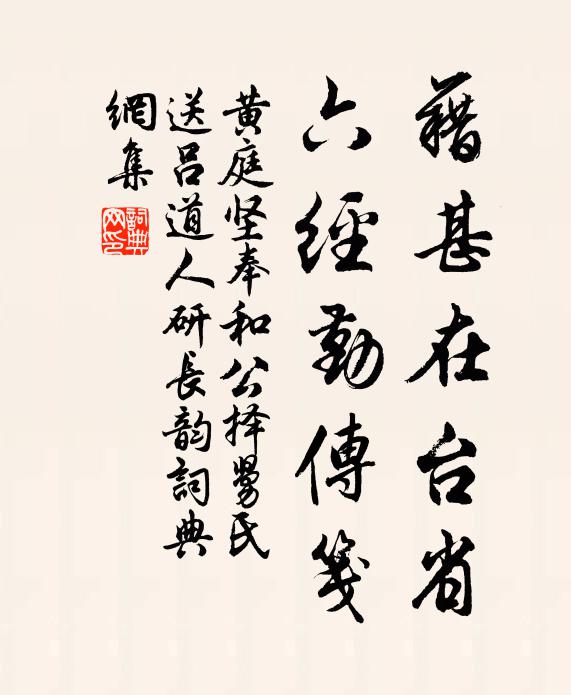 藉甚在台省
六經勤傳箋
黄庭坚奉和公择舅氏
送吕道人研長韵詞典
網集
詞典
网印